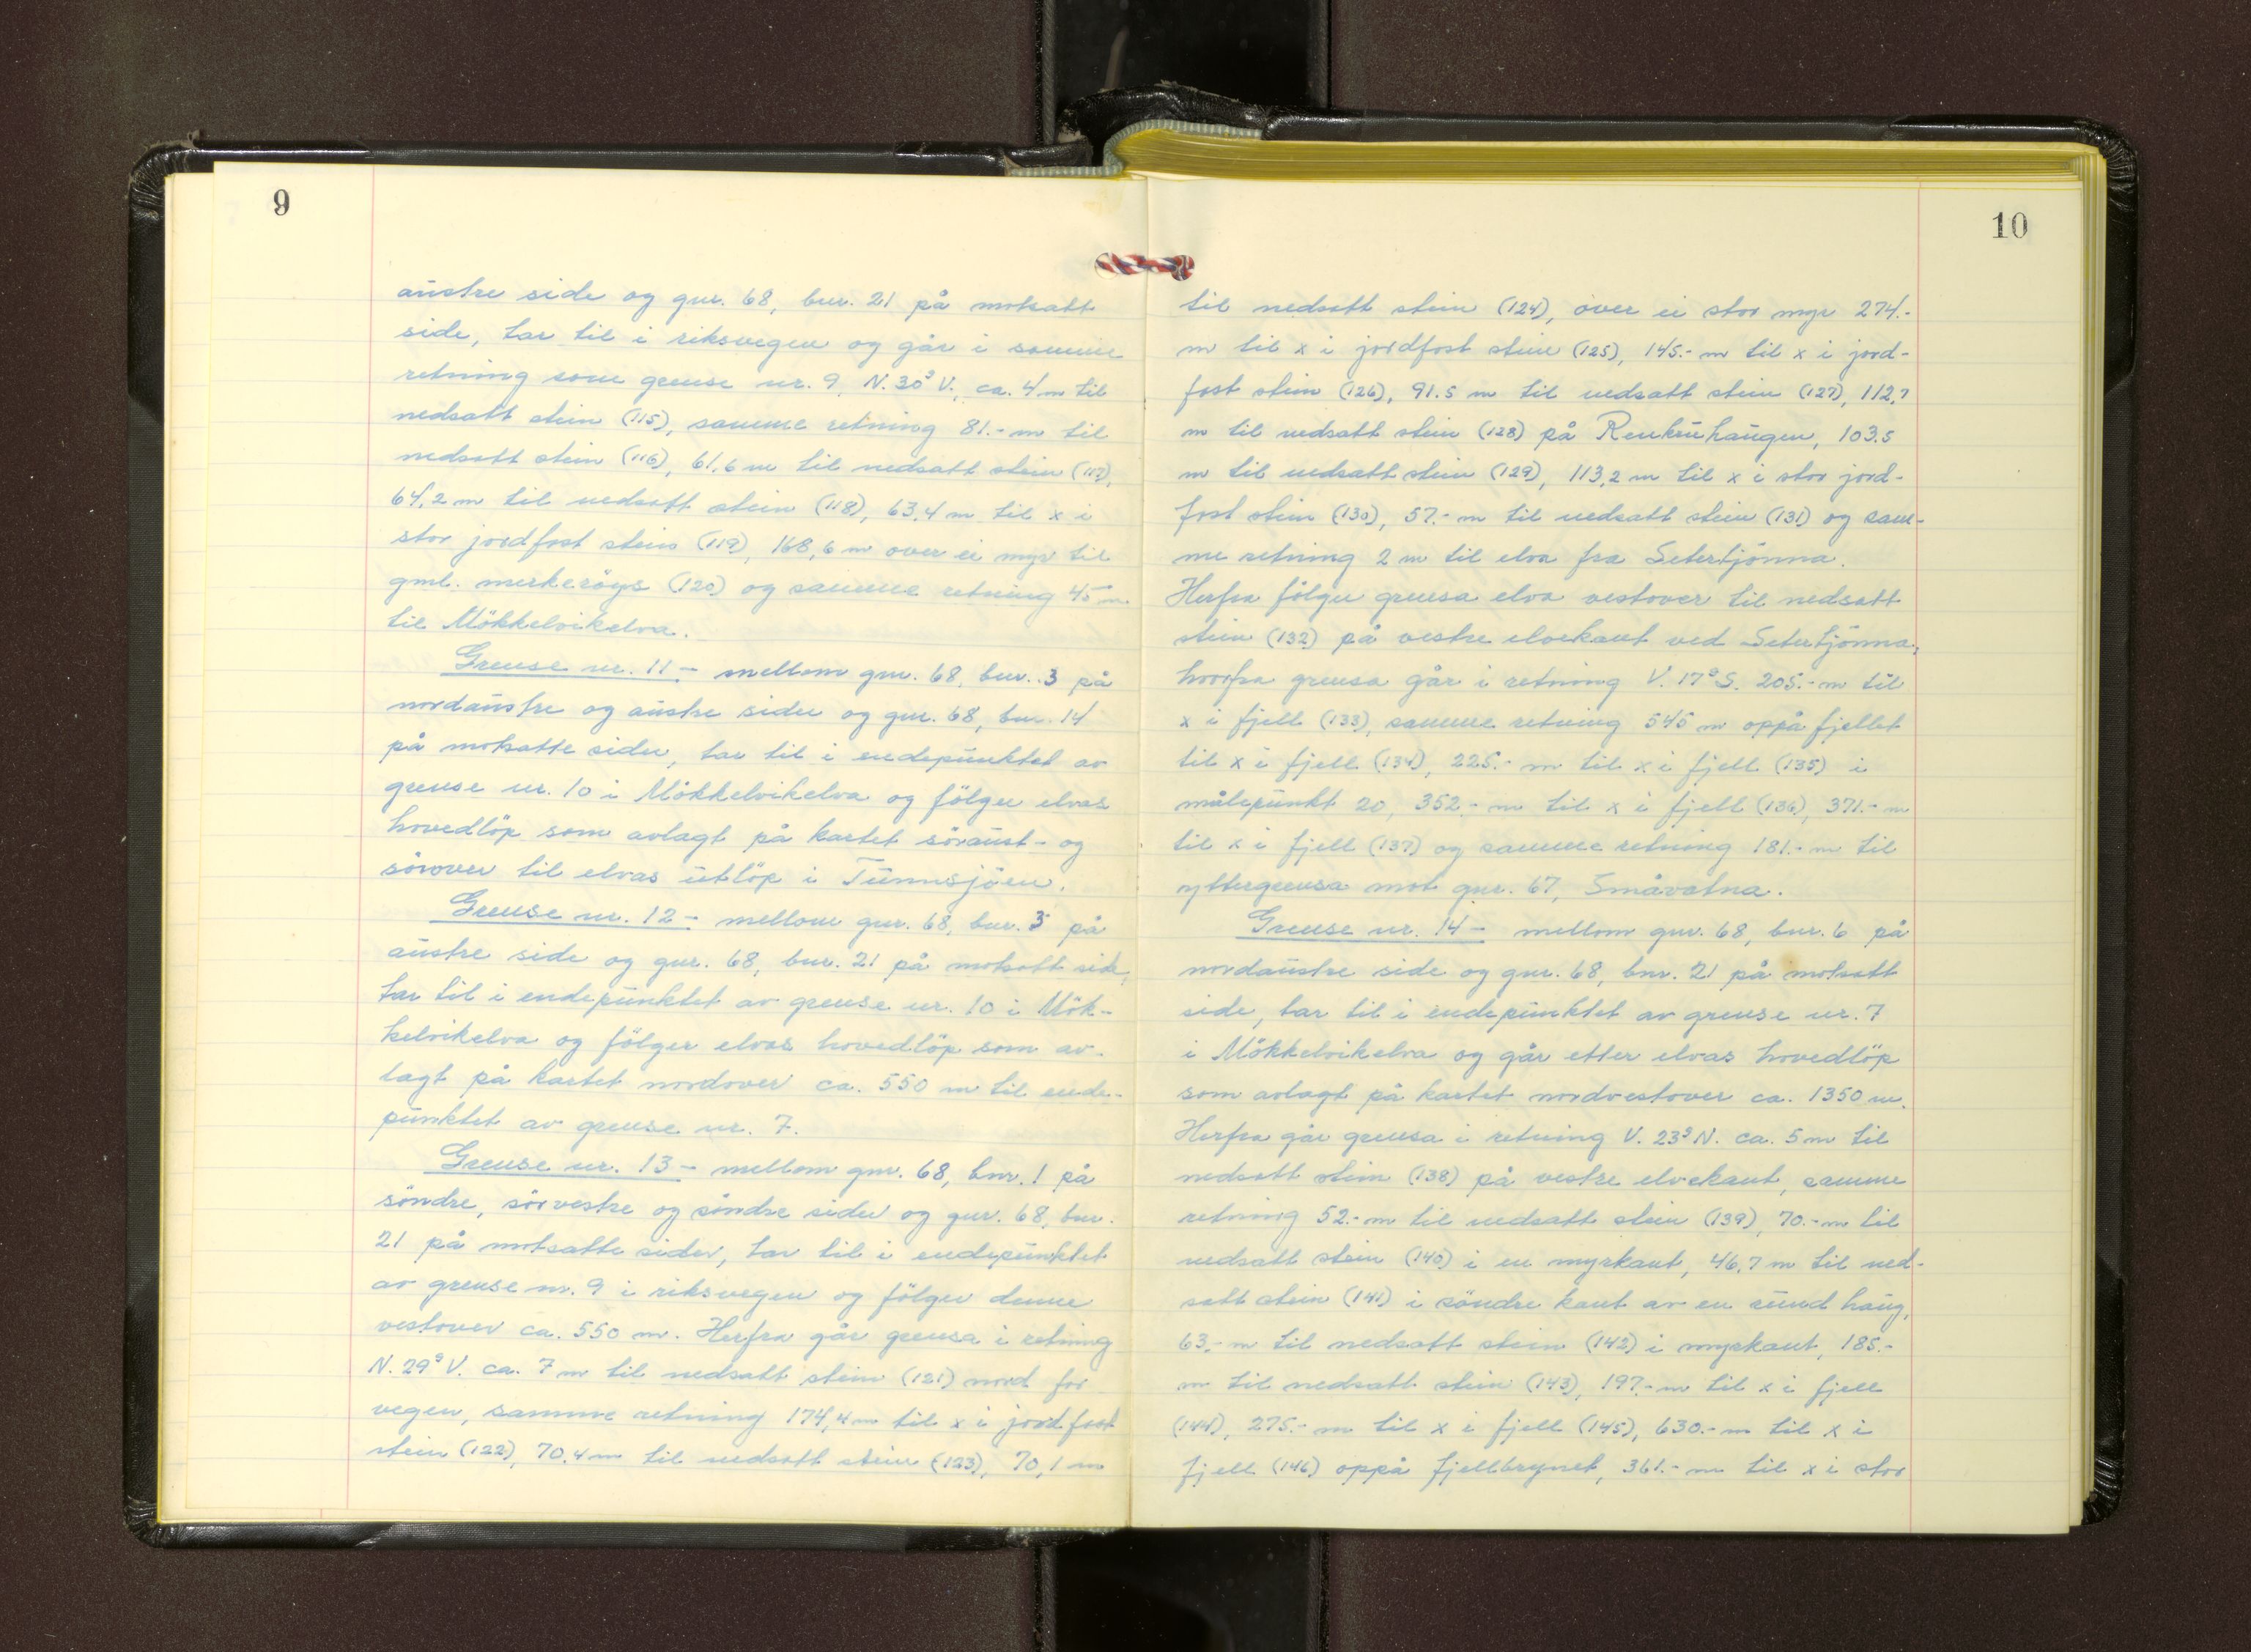 9
austre side og gnr. 68, bnr. 21 på motsatt
side, tar til i riksvegen og går i samme
retning som grense nr. 9, N. 30g V., ca. 4 m til
nedsatt stein (115), samme retning 81.- m til
nedsatt stein (116), 61,6 m til nedsatt stein (117),
64,2 m til nedsatt stein (118), 63,4 m til x i
stor jordfast stein (119), 168,6 m over ei myr til
gml. merkeröys (120) og samme retning 45 m
til Mökkelvikelva.
Grense nr. 11 - mellom gnr. 68, bnr. 3 på
nordaustre og austre sider og gnr. 68, bnr. 14
på motsatte sider, tar til i endepunktet av
grense nr. 10 i Mökkelvikelva og fölger elvas
hovedlöp som avlagt på kartet söraust- og
sörover til elvas utlöp i Tunnsjöen.
Grense nr. 12 - mellom gnr. 68, bnr. 3 på
austre side og gnr. 68, bnr. 21 på motsatt side,
tar til i endepunktet av grense nr. 10 i Mök-
kelvikelva og fölger elvas hovedlöp som av-
lagt på kartet nordover ca. 550 m til ende-
punktet av grense nr. 7.
Grense nr. 13 - mellom gnr. 68, bnr. 1 på
söndre, sörvestre og söndre sider og gnr. 68, bnr.
21 på motsatte sider, tar til i endepunktet
av grense nr. 9 i riksvegen og fölger denne
vestover ca. 550 m. Herfra går grensa i retning
N. 29g V. ca. 7 m til nedsatt stein (121) nord for
vegen, samme retning 174,4 m til x i jordfast
stein (122), 70,4 m til nedsatt stein (123), 70,1 m
10
til nedsatt stein (124), over ei stor myr 274.-
m til x i jordfast stein (125), 145.- m til x i jord-
fast stein (126), 91.5 m til nedsatt stein (127), 112,7
m til nedsatt stein (128) på Renkruhaugen, 103.5
m til nedsatt stein (129), 113,2 m til x i stor jord-
fast stein (130), 57.- m til nedsatt stein (131) og sam-
me retning 2 m til elva fra Setertjönna.
Herfra fölger grensa elva vestover til nedsatt
stein (132) på vestre elvekant ved Setertjönna,
hvorfra grensa går i retning V. 17g S. 205.- m til
x i fjell (133), samme retning 545 m oppå fjellet
til x i fjell (134), 225.- m til x i fjell (135) i
målepunkt 20, 352.- m til x i fjell (136), 371.- m
til x i fjell (137) og samme retning 181.- m til
yttergrensa mot gnr. 67, Småvatna.
Grense nr. 14 - mellom gnr. 68, bnr. 6 på
nordaustre side og gnr. 68, bnr. 21 på motsatt
side, tar til i endepunktet av grense nr. 7
i Mökkelvikelva og går etter elvas hovedlöp
som avlagt på kartet nordvestover ca. 1350 m.
Herfra går grensa i retning V. 23g N. ca. 5 m til
nedsatt stein (138) på vestre elvekant, samme
retning 52.- m til nedsatt stein (139), 70.- m til
nedsatt stein (140) i en myrkant, 46,7 m til ned-
satt stein (141) i söndre kant av en rund haug,
63.- m til nedsatt stein (142) i myrkant, 185.-
m til nedsatt stein (143), 197.- m til x i fjell
(144), 275.- m til x i fjell (145), 630.- m til x i
fjell (146) oppå fjellbrynet, 361.- m til x i stor